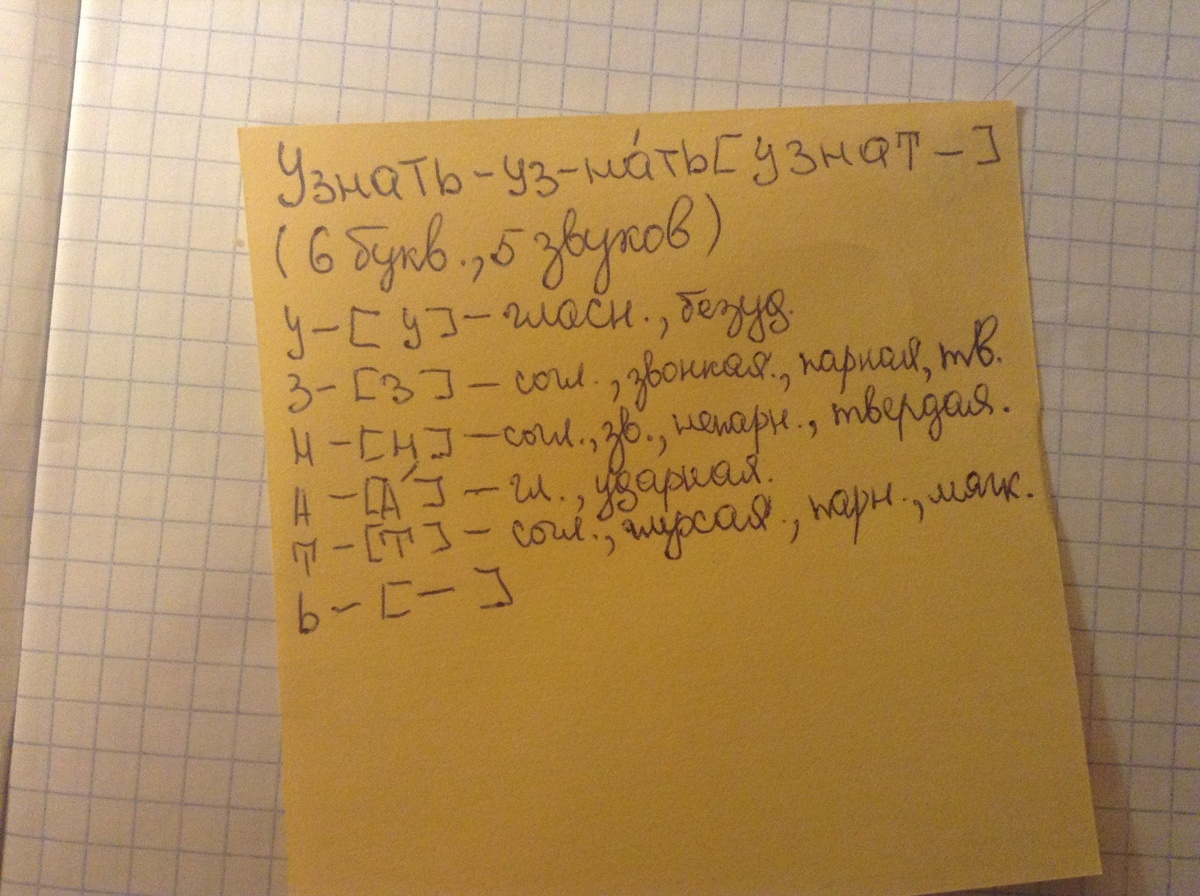 Узнать-уз-на́ть[узнат-]
(6 букв., 5 звуков)
у-[у]-гласн., безуд.
з-[з]-согл., звонкая., парная, тв.
н-[н]-согл., зв., непарн., твердая.
А-[А́]-гл., ударная.
т-[т]-согл., глухая., парн., мягк.
ь-[-]